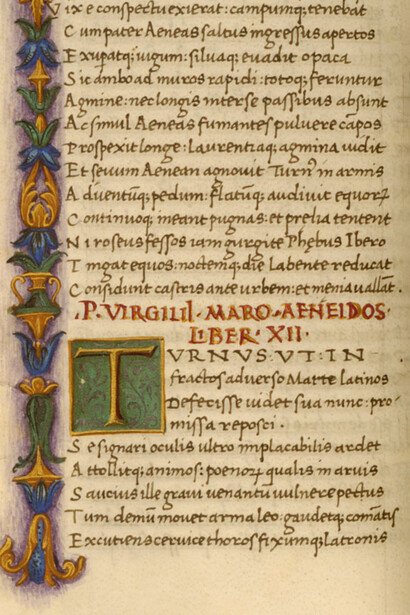 Vix e conspectu exierat: campumq; tenebat
Cum pater Aeneas saltus ingressus apertos
Exupatq; iugum: siluaq; euadit opaca
Sic ambo ad muros rapidi: totoq; feruntur
Agmine: nec longis inter se passibus absunt
Ac simul Aeneas fumantes puluere cāpos
Prospexit longe: laurentiaq; agmina uidit
Et seuum Aenean agnouit Turnꝰ in armis
Aduentūq; pedum: flatūq; audiuit equorꝝ
Continuoq; ineant pugnas: et prelia tentent
Ni roseus fessos iam gurgite Phębus Ibero
Tingat equos: noctemq; die labente reducat
Considunt castris ante urbem: et menia uallāt.
·P· VIRGILII· MARO· AENEIDOS·
LIBER· XII·
TURNUS· UT: IN
fractos aduerso Marte latinos
Defecisse uidet sua nunc: pro-
missa reposci·
Se signari oculis ultro implacabilis ardet
Attollitq; animos: poenorꝝ qualis in aruis
Saucius ille graui uenantū uulnere pectus
Tum demū mouet arma leo: gaudetq; comātis
Excutiens ceruice thoros fixumq; latronis